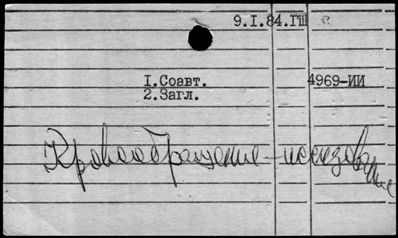 9.I.84.ГШ
I.Соавт. 4969-ИИ
2.Загл.
Кровообращение-исследование